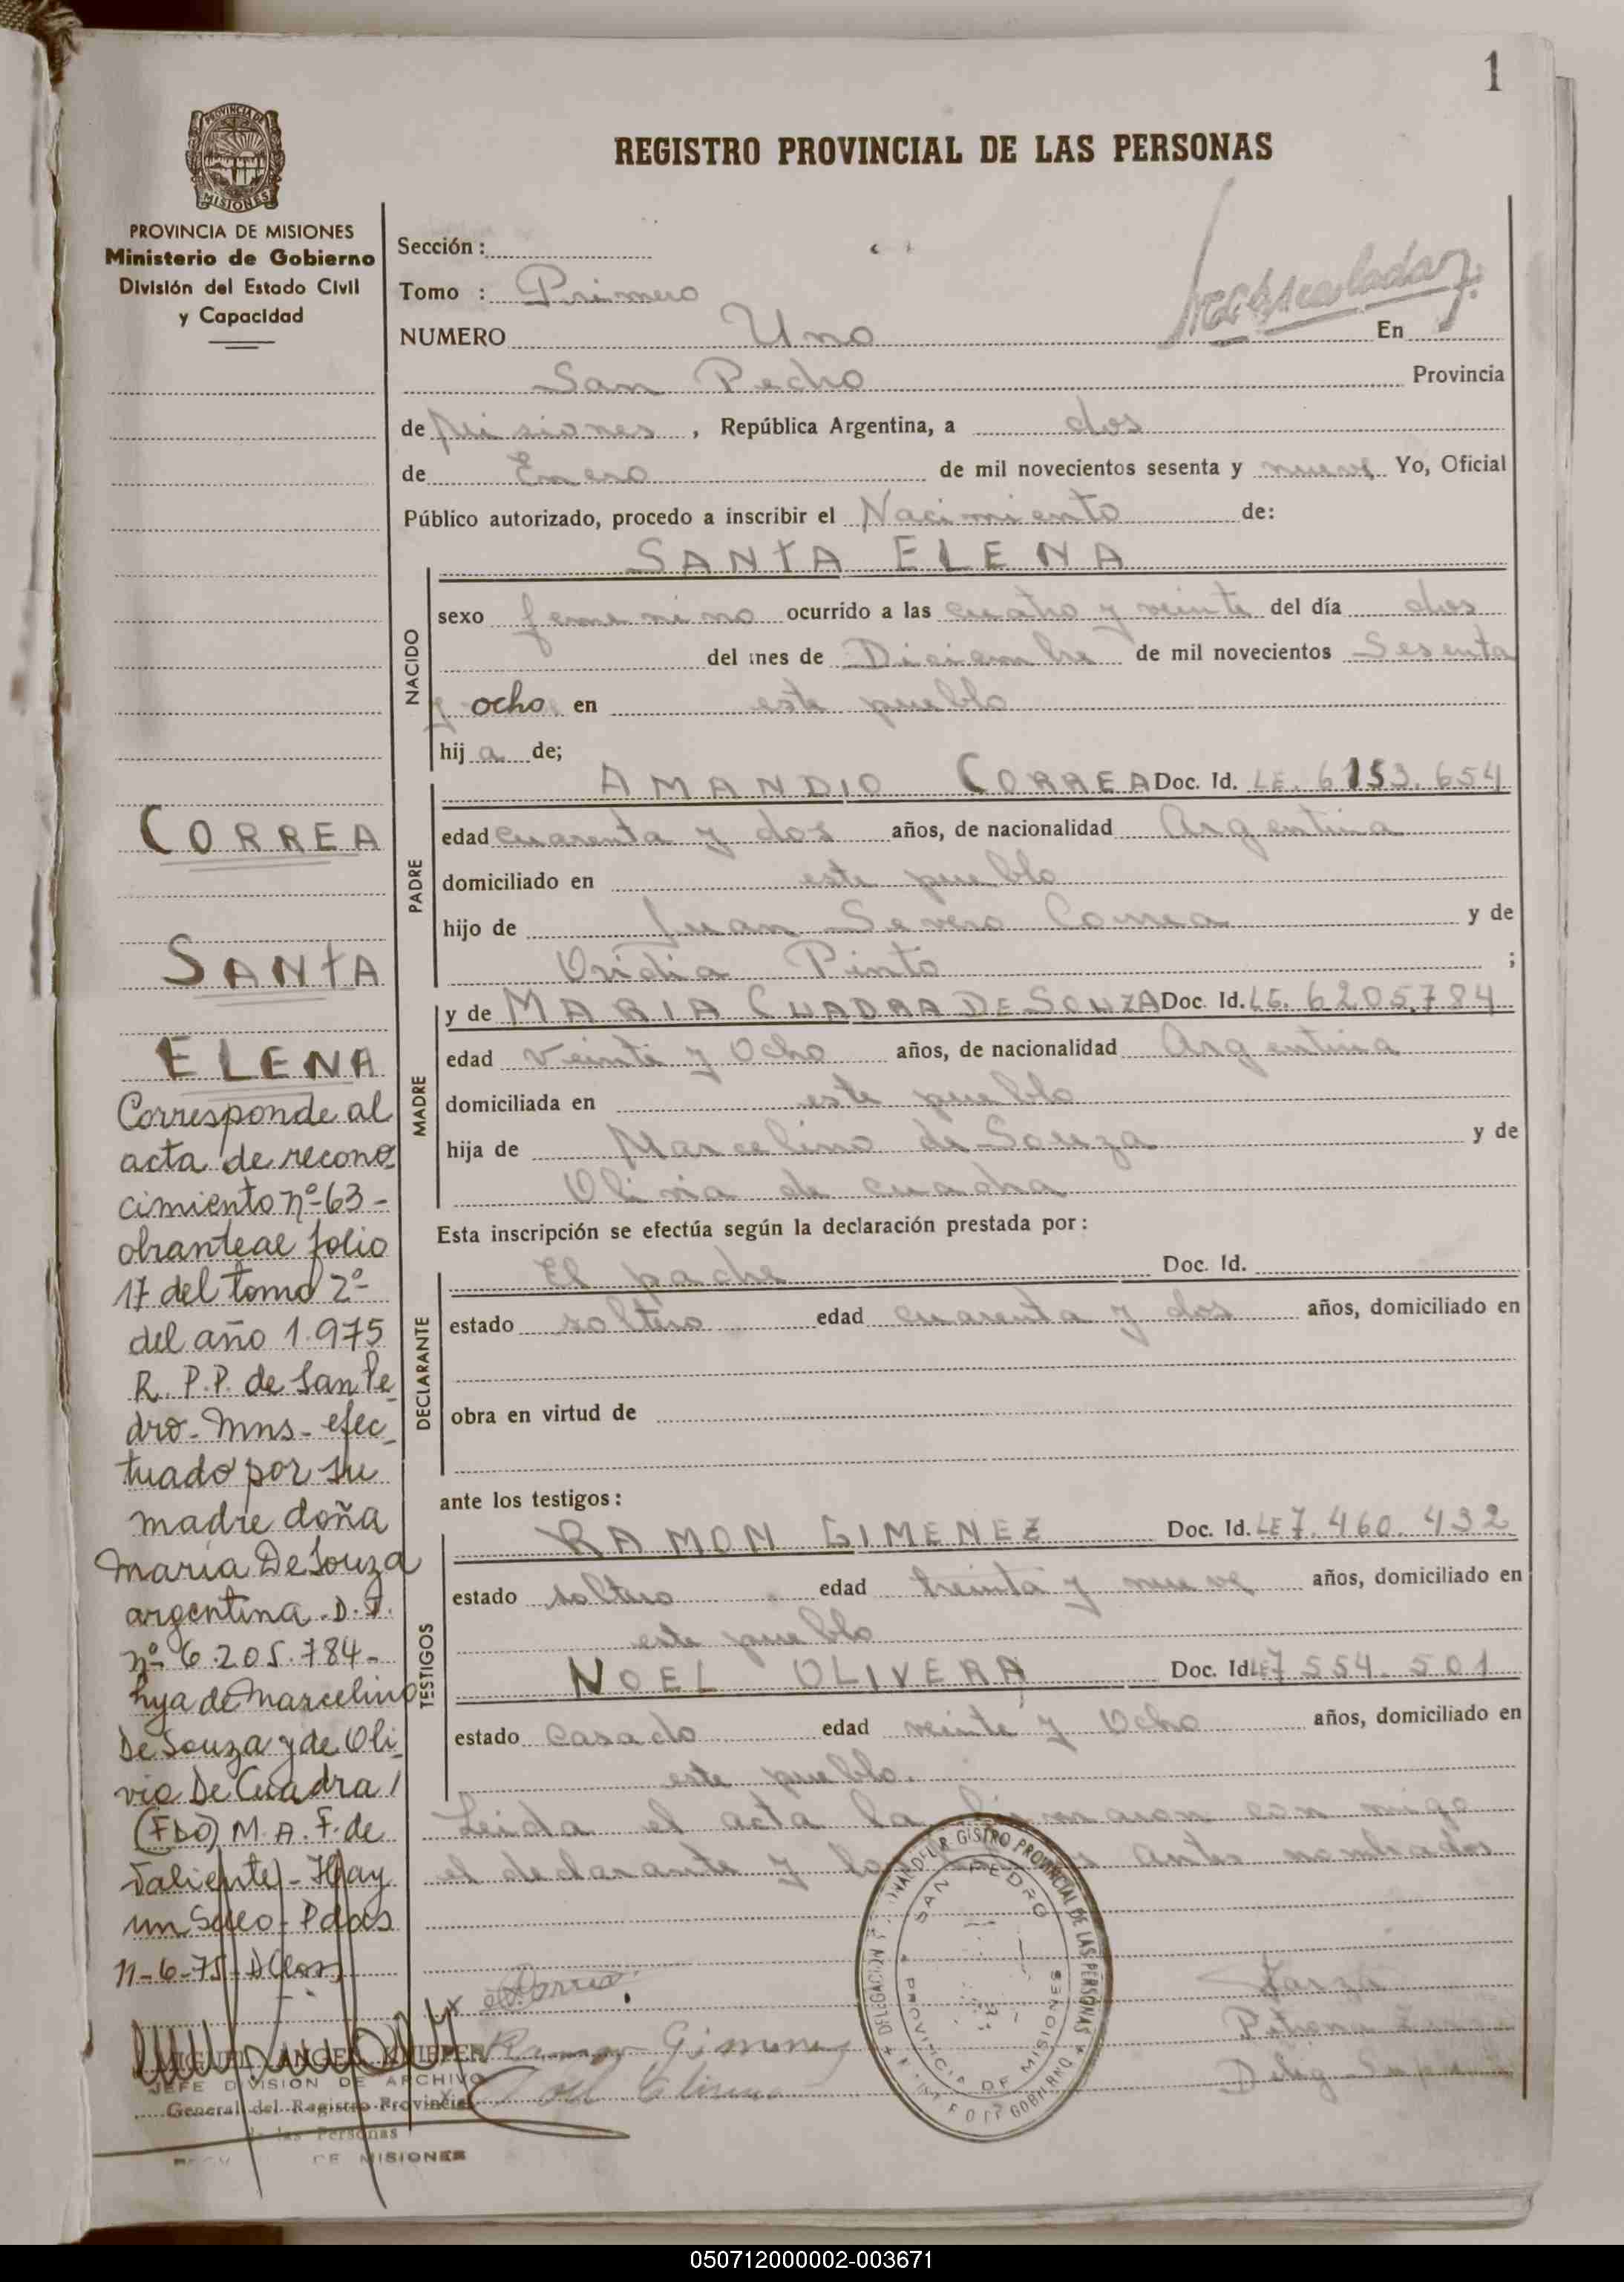 1
REGISTRO PROVINCIAL DE LAS PERSONAS
PROVINCIA DE MISIONES
PROVINCIA DE MISIONES
Ministerio de Gobierno
División del Estado Civil
y Capacidad
Sección :
Tomo : Primero
NUMERO Uno En
San Pedro Provincia
de Misiones , República Argentina, a dos
de Enero de mil novecientos sesenta y nueve Yo, Oficial
Público autorizado, procedo a inscribir el Nacimiento de:
NACIDO
SANTA ELENA
sexo femenino ocurrido a las cuatro y veinte del día dos
del mes de Diciembre de mil novecientos Sesenta
y ocho en este pueblo
hij a de;
PADRE
AMANDIO CORREA Doc. Id. LE. 6153.654
edad cuarenta y dos años, de nacionalidad Argentina
domiciliado en este pueblo
hijo de Juan Severo Correa y de
Ovidia Pinto ;
MADRE
y de MARIA CUADRA DE SOUZA Doc. Id. LE. 6205,784
edad veinte y Ocho años, de nacionalidad Argentina
domiciliada en este pueblo
hija de Marcelino de Souza y de
Olivia de cuadra
Esta inscripción se efectúa según la declaración prestada por :
DECLARANTE
El padre Doc. Id.
estado soltero edad cuarenta y dos años, domiciliado en
obra en virtud de
ante los testigos :
TESTIGOS
RAMON GIMENEZ Doc. Id. LE 7.460.432
estado soltero edad treinta y nueve años, domiciliado en
este pueblo
NOEL OLIVERA Doc. Id. LE 7 554.501
estado casado edad veinte y Ocho años, domiciliado en
este pueblo.
Leida el acta la firmaron con migo
el declarante y los antes nombrados
CORREA
SANTA
ELENA
Corresponde al
acta de recono
cimiento nº-63-
obrante al folio
17 del tomo 2º-
del año 1.975
R. P.P. de San Pe
dro- Mns- efec_
tuado por su
madre doña
María De Souza
argentina-D.I.
nº- 6.205.784-
hija de Marcelino
De Souza y de Oli_
via De Cuadra/
(FDO) M.A.F. de
Taliente)-Hay
un Sello-Pdas
11-6-75
Correa.
Ramon Gimenez
Noel Olivera
MIGUEL ANGEL
JEFE DIVISION DE ARCHIVO
General del Registro Provincial
de las Personas
DE MISIONES
DELEGACION REGISTRO PROVINCIAL DE LAS PERSONAS
SAN PEDRO
PROVINCIA DE MISIONES
050712000002-003671